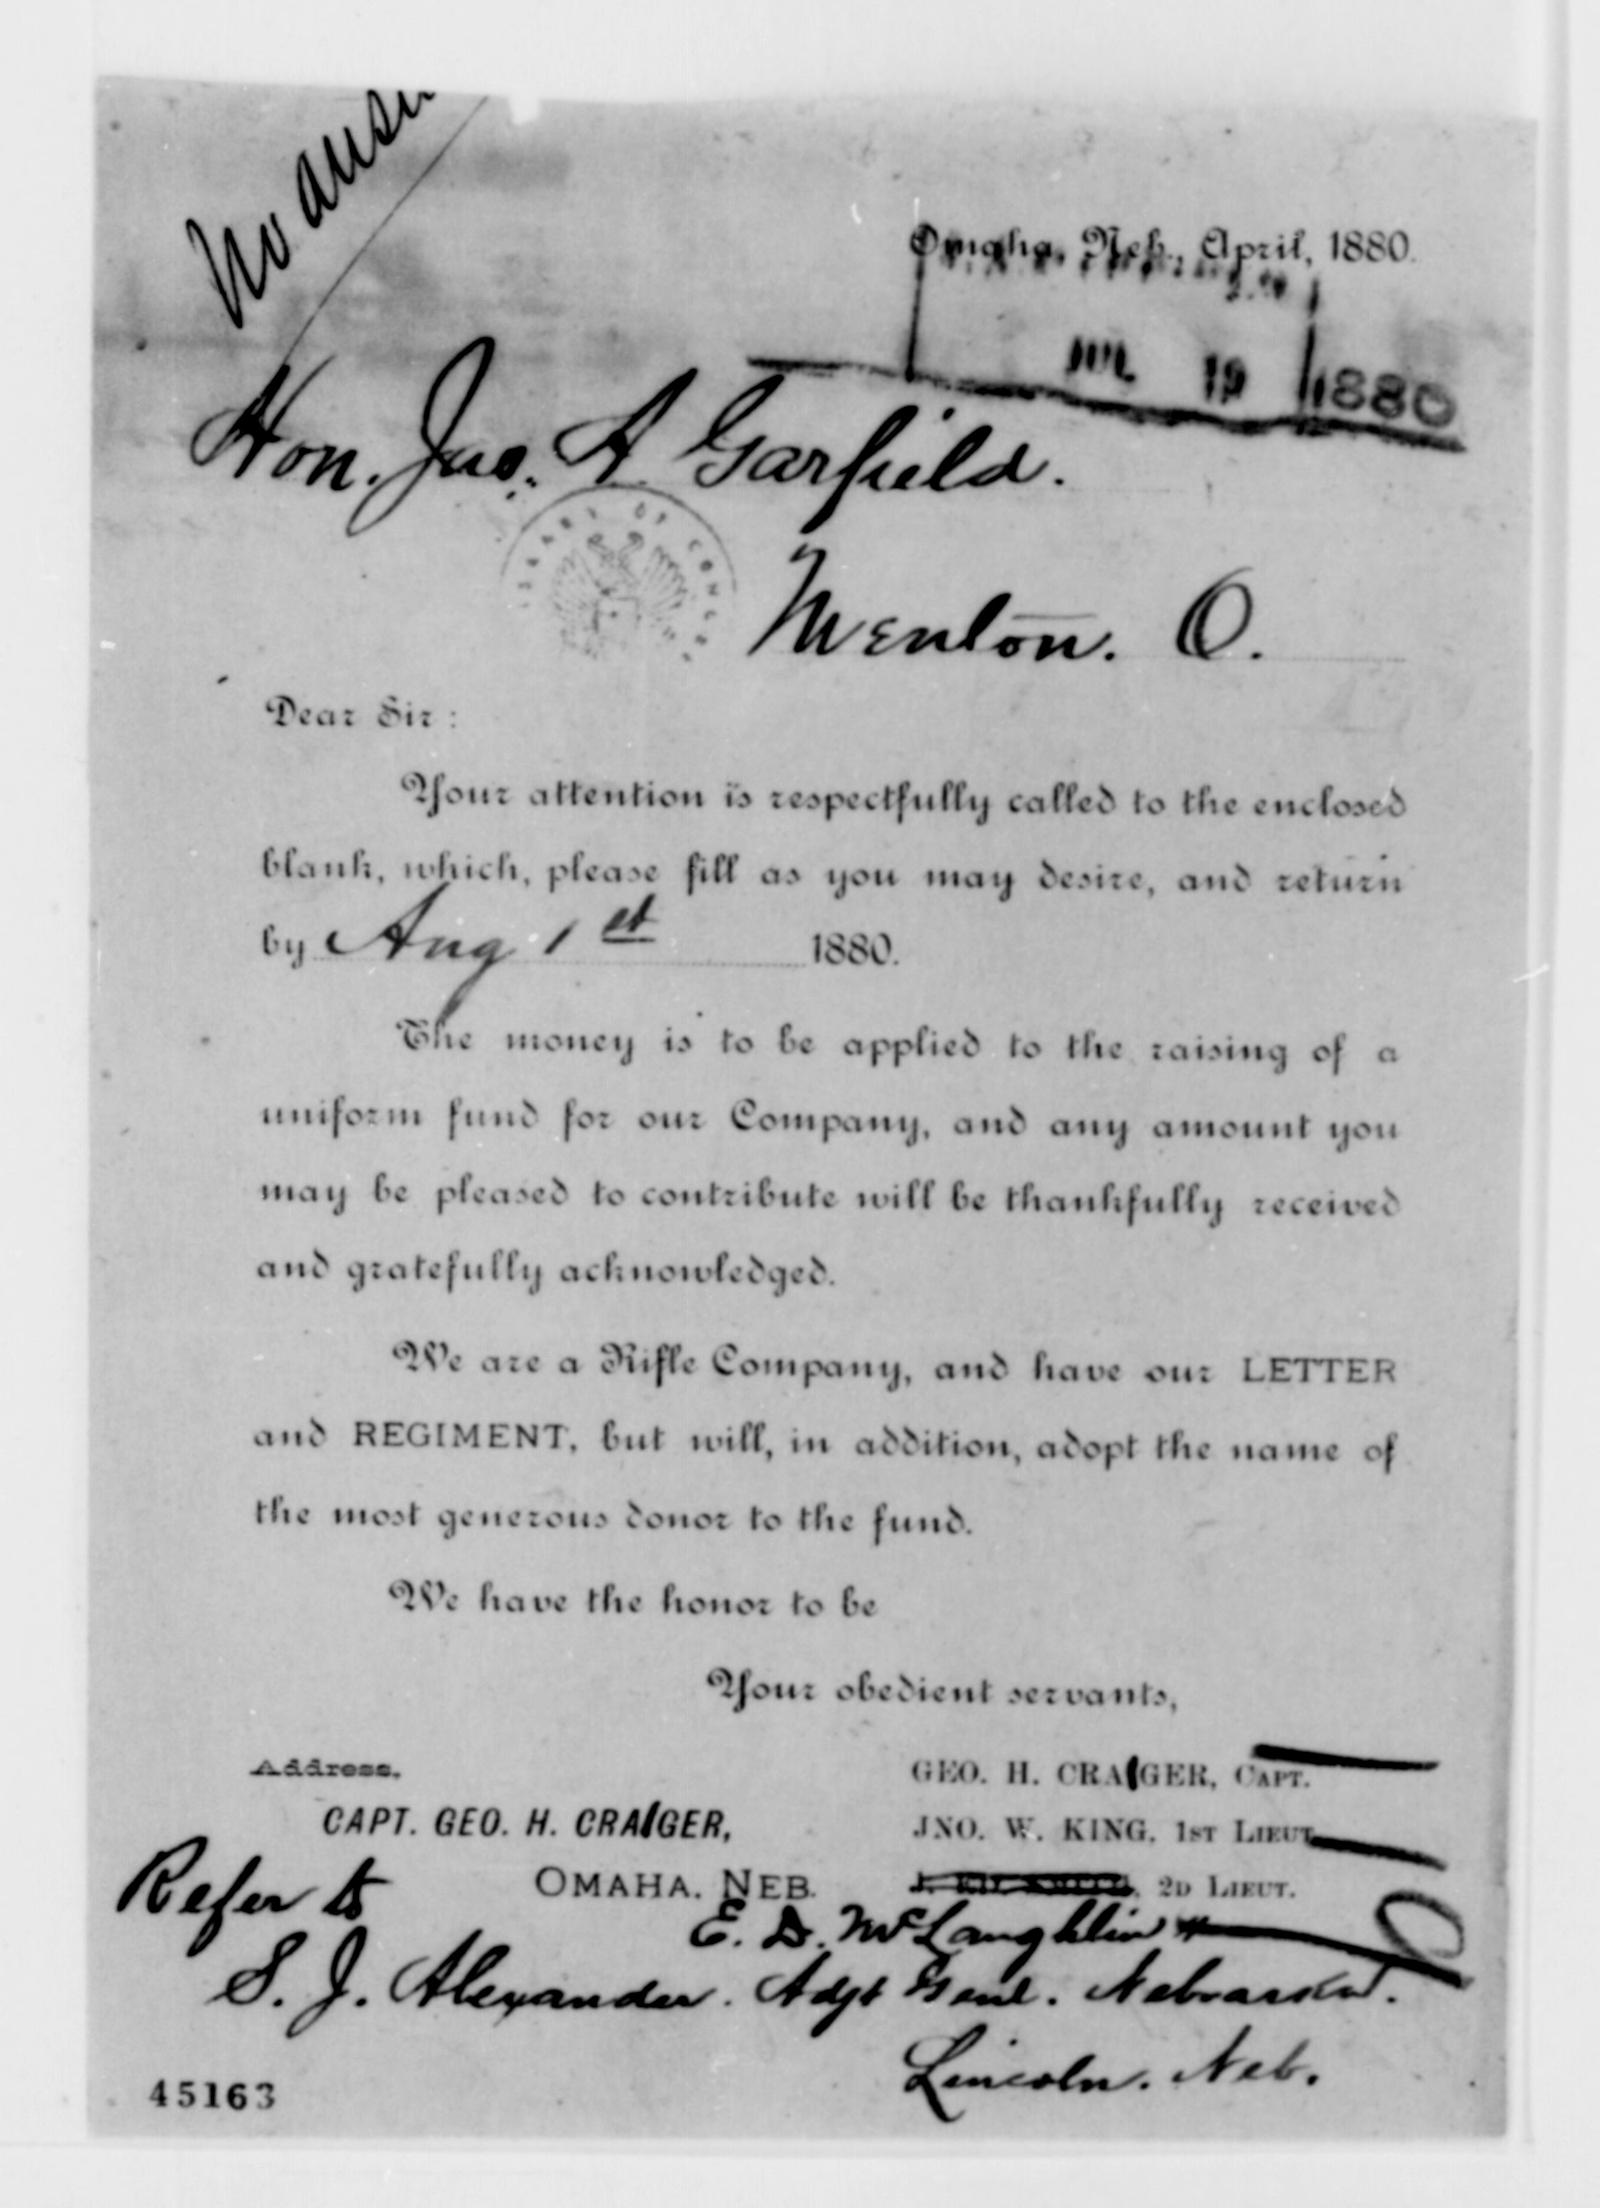 No
Omaha, Neb., April, 1880.
JUL 19 1880
Hon. Jas. A Garfield.
LIBRARY OF CONGRESS
Mentor. O.
Dear Sir:
Your attention is respectfully called to the enclosed
blank, which, please fill as you may desire, and return
by Aug 1st 1880.
The money is to be applied to the raising of a
uniform fund for our Company, and any amount you
may be pleased to contribute will be thankfully received
and gratefully acknowledged.
We are a Rifle Company, and have our LETTER
and REGIMENT, but will, in addition, adopt the name of
the most generous donor to the fund.
We have the honor to be
Your obedient servants,
Address,
GEO. H. CRAIGER, CAPT.
CAPT. GEO. H. CRAIGER,
JNO. W. KING, 1ST LIEUT.
OMAHA, NEB.
2D LIEUT.
Refer to
E. D. McLaughlin
S. J. Alexander. Adjt Genl. Nebraska.
Lincoln. Neb.
45163